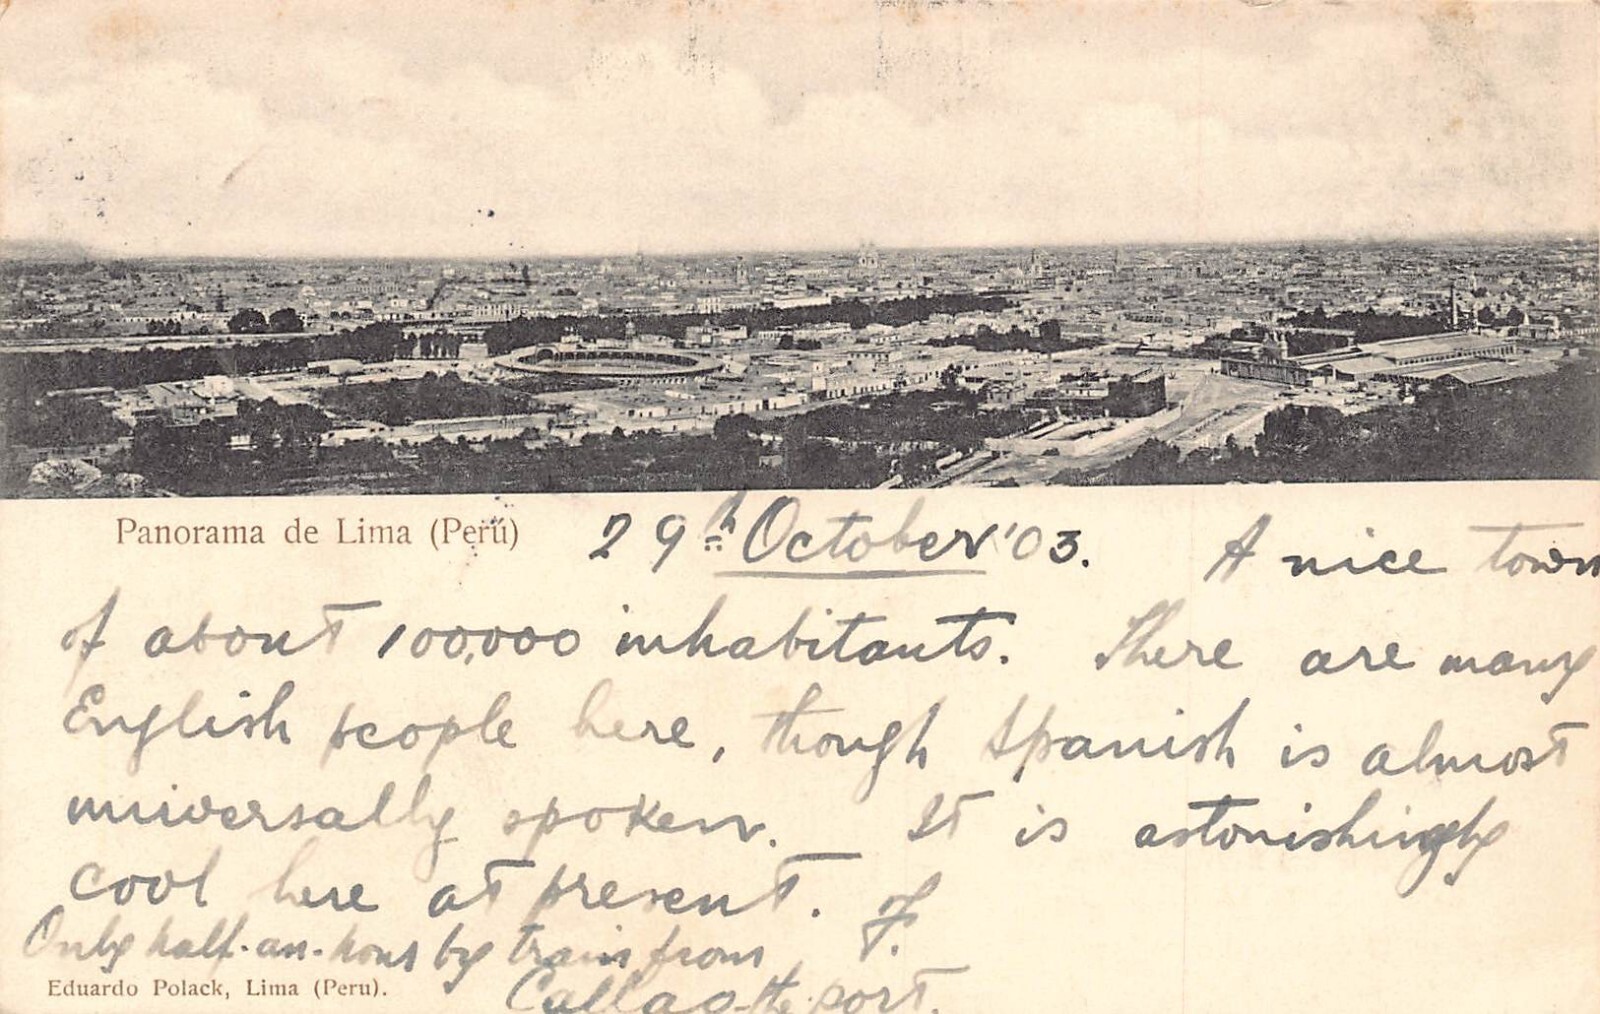 Panorama de Lima (Perú)
29th October '03. A nice town
of about 100,000 inhabitants. There are many
English people here, though Spanish is almost
universally spoken. It is astonishingly
cool here at present. F.
Only half-an-hour by train from
Callao - the port.
Eduardo Polack, Lima (Peru).